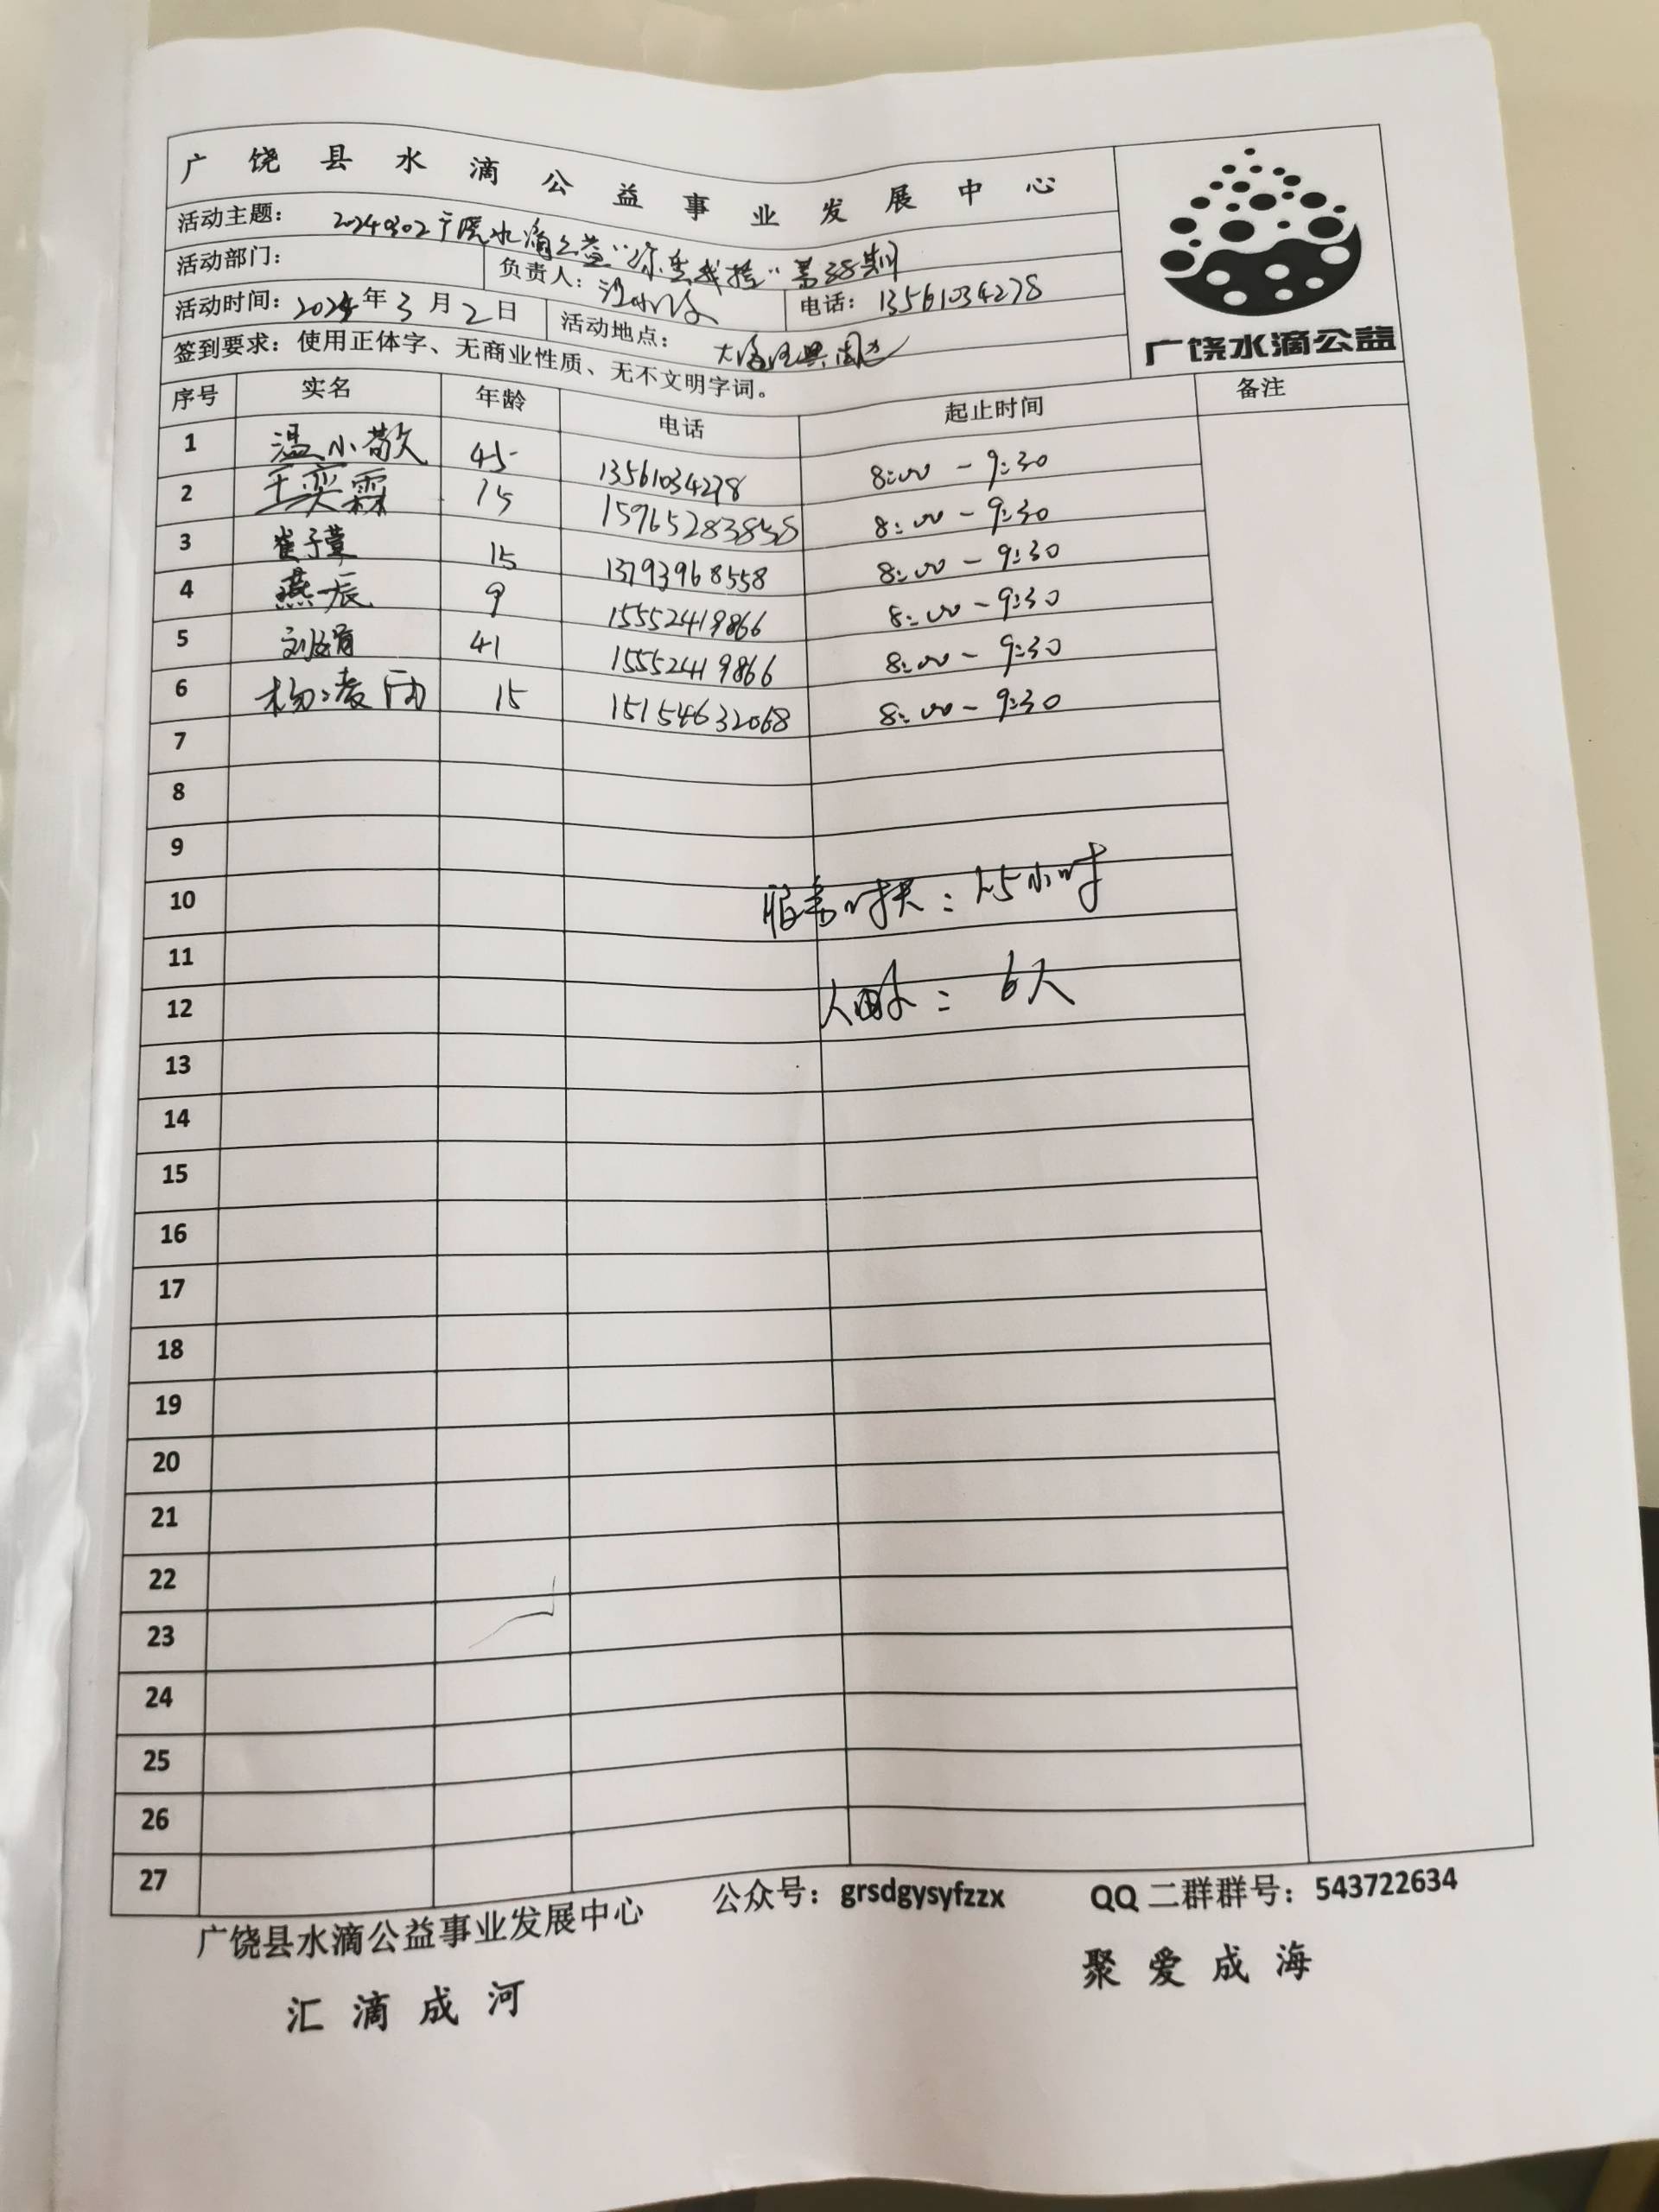 广饶县水滴公益事业发展中心
活动主题： 20240302广饶水滴公益“你丢我捡”第38期
活动部门： 负责人： 电话：13561034278
活动时间：2024年3月2日 活动地点：
签到要求：使用正体字、无商业性质、无不文明字词。
广饶水滴公益
序号 实名 年龄 电话 起止时间 备注
1 温小敬 45 13561034278 8:00-9:30
2 王奕霖 15 15965283858 8:00-9:30
3 崔子萱 15 13793968558 8:00-9:30
4 燕辰 9 15552419866 8:00-9:30
5 41 15552419866 8:00-9:30
6 杨凌 15 15154632068 8:00-9:30
7
8
9
10 服务时长：1.5小时
11
12 人数：6人
13
14
15
16
17
18
19
20
21
22
23
24
25
26
27
广饶县水滴公益事业发展中心 公众号：grsdgysyfzzx QQ二群群号：543722634
汇滴成河 聚爱成海